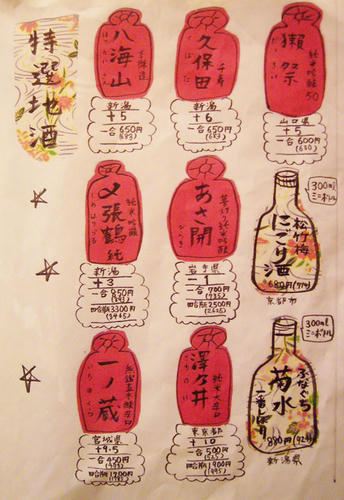 特選地酒
獺祭
純米吟醸50
山口県
+5
一合600円
(630)
久保田
千寿
くぼた
新潟
+6
一合650円
(683)
八海山
新潟
+5
一合650円
(683)
300ml
ミニボトル
松竹梅
にごり酒
680円(714)
京都市
あさ開
純米吟醸
岩手県
-1
一合700円
(735)
四合瓶2500円
(2625)
〆張鶴
純
純米吟醸
しめはりつる
新潟
+3
一合850円
四合瓶3300円
(3465)
300ml
ミニボトル
ふなぐち
菊水
一番しぼり
880円(924)
新潟県
澤乃井
純米大辛口
さわのい
東京都
+10
一合500円
(525)
四合瓶1900円
(1995)
一ノ蔵
無鑑査本醸辛口
いちのくら
宮城県
一合450円
(473)
四合瓶1700円